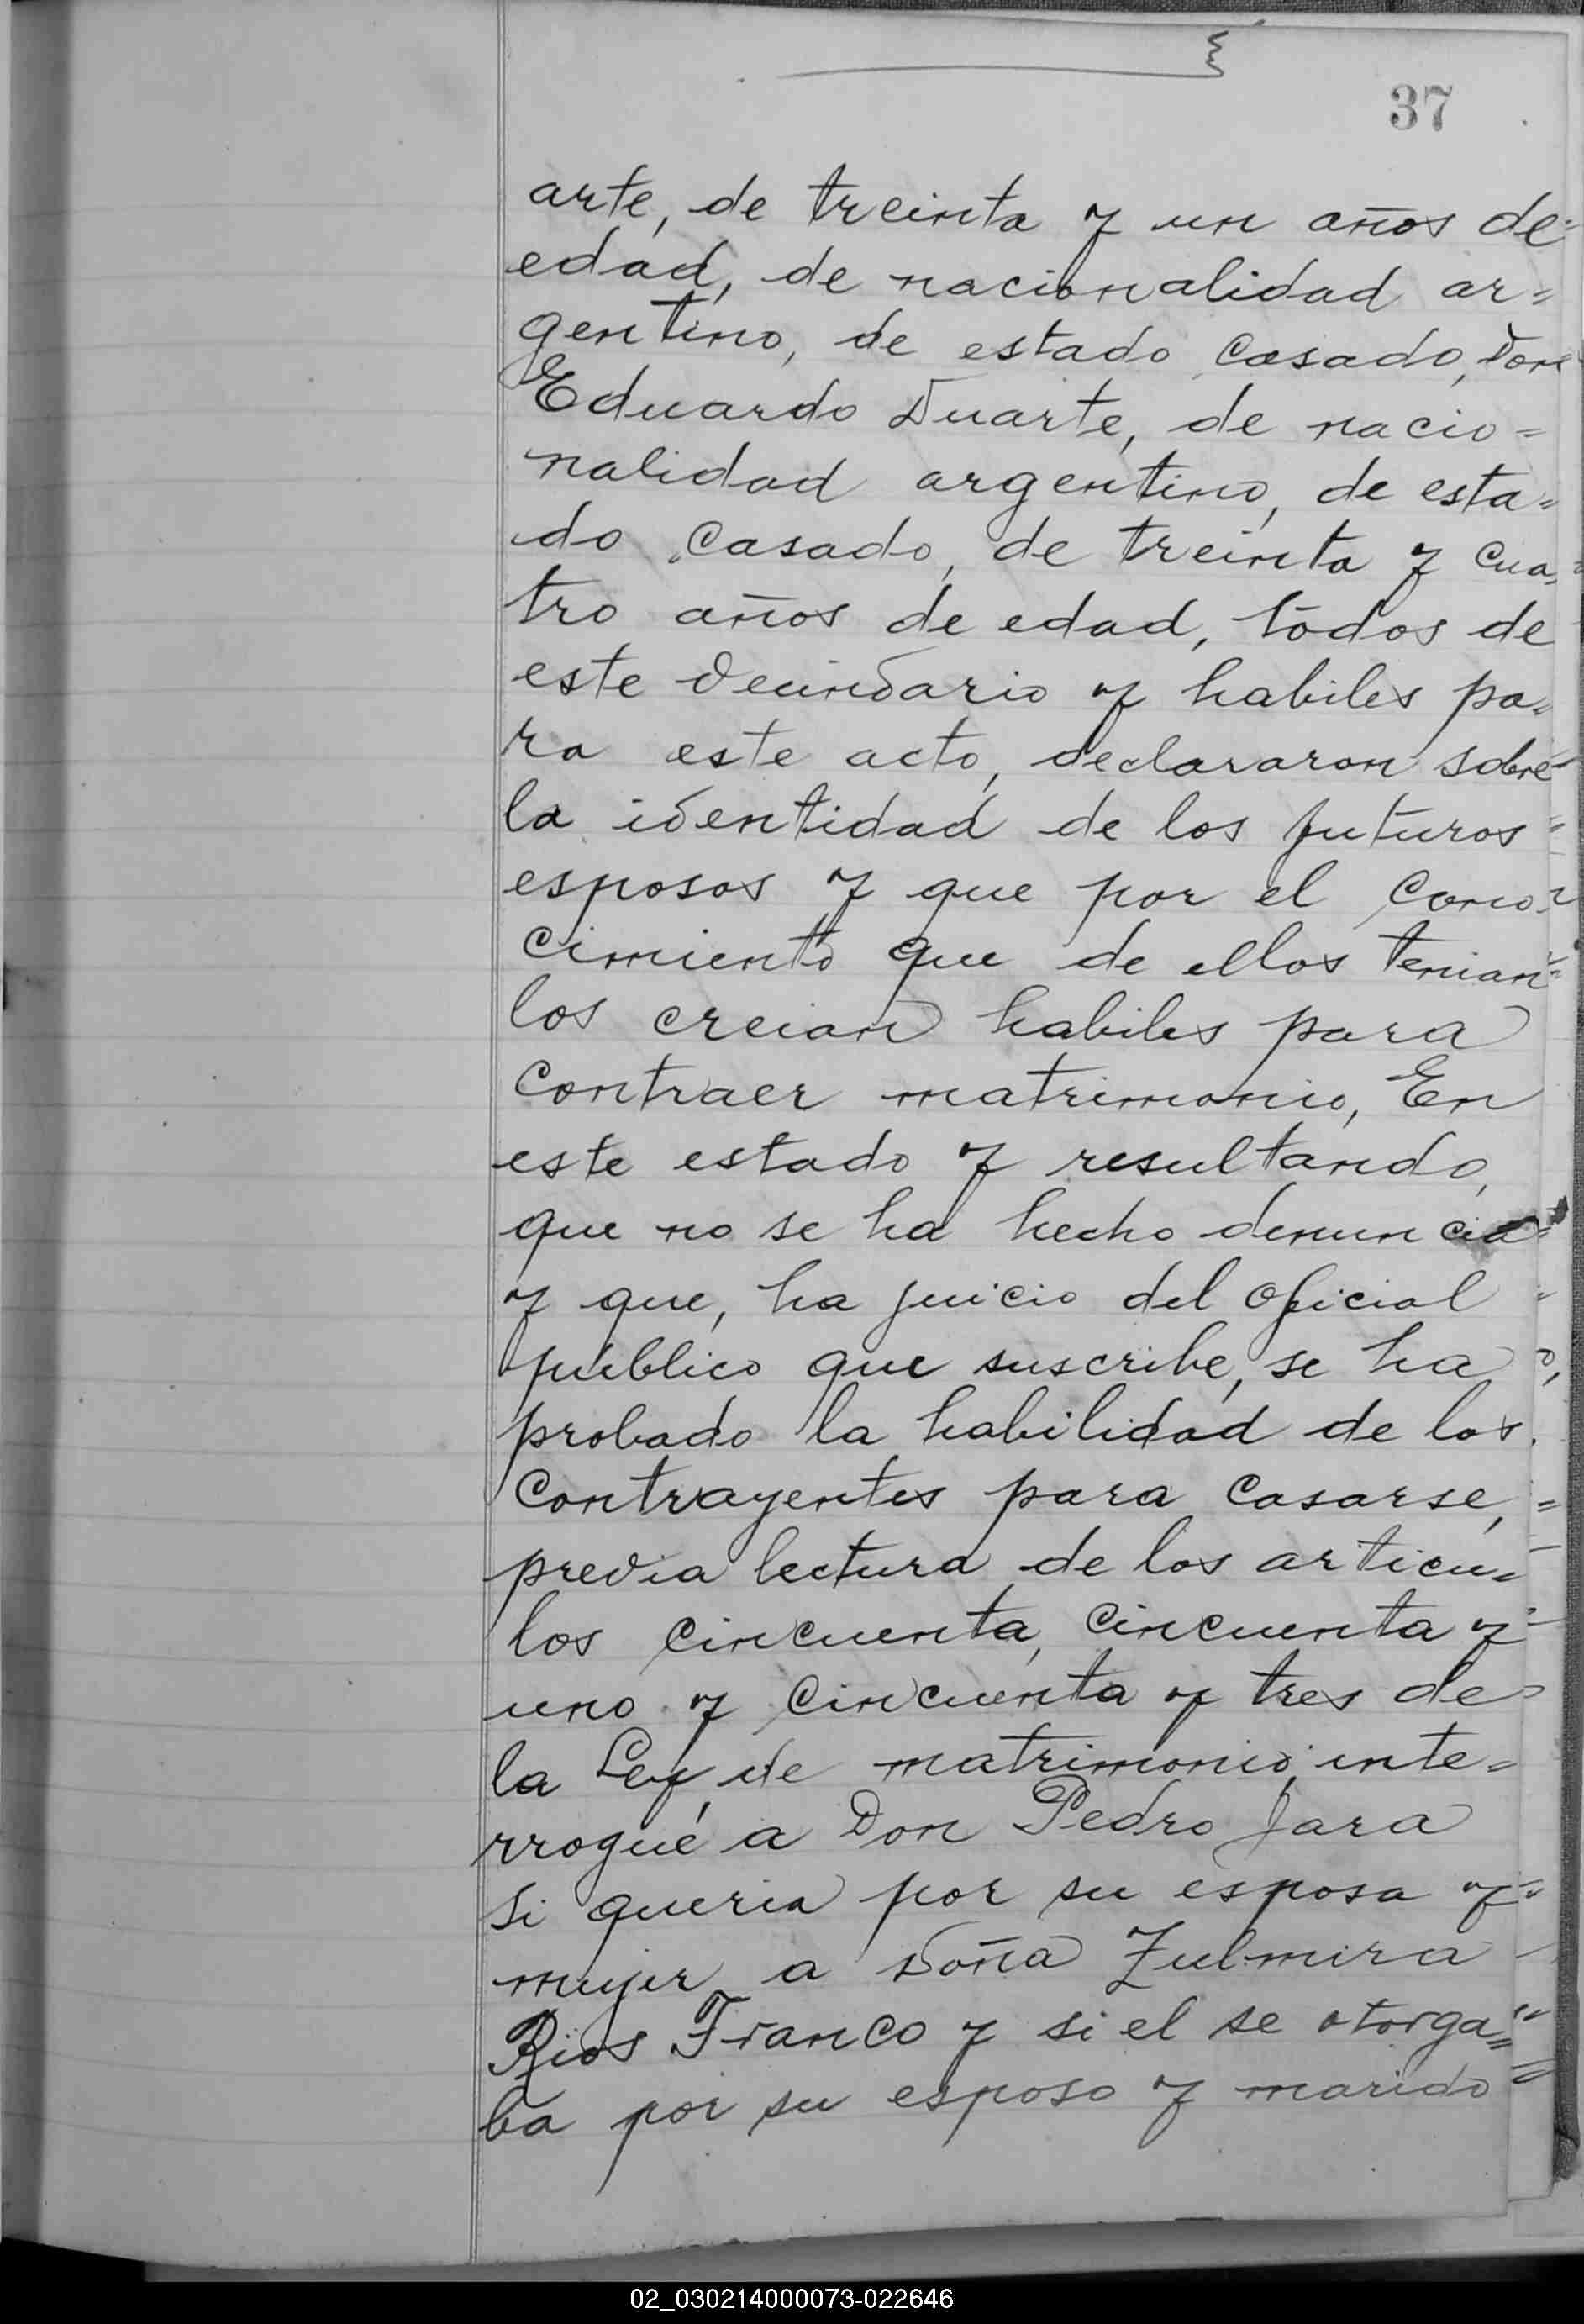 37
arte, de treinta y un años de
edad, de nacionalidad ar=
gentino, de estado casado, Don
Eduardo Duarte, de nacio=
nalidad argentino, de esta=
do casado, de treinta y cua=
tro años de edad, todos de
este vecindario y habiles pa=
ra este acto, declararon sobre
la identidad de los futuros
esposos y que por el cono=
cimiento que de ellos tenian
los creian habiles para
contraer matrimonio, En
este estado y resultando,
que no se ha hecho denuncia
y que, ha juicio del oficial
público que suscribe, se ha
probado la habilidad de los
contrayentes para casarse,
previa lectura de los articu=
los cincuenta, cincuenta y
uno y cincuenta y tres de
la Ley de matrimonio, inte=
rrogué a Don Pedro Jara
si queria por su esposa y
mujer a Doña Zulmira
Rios Franco y si el se otorga=
ba por su esposo y marido
02_030214000073-022646